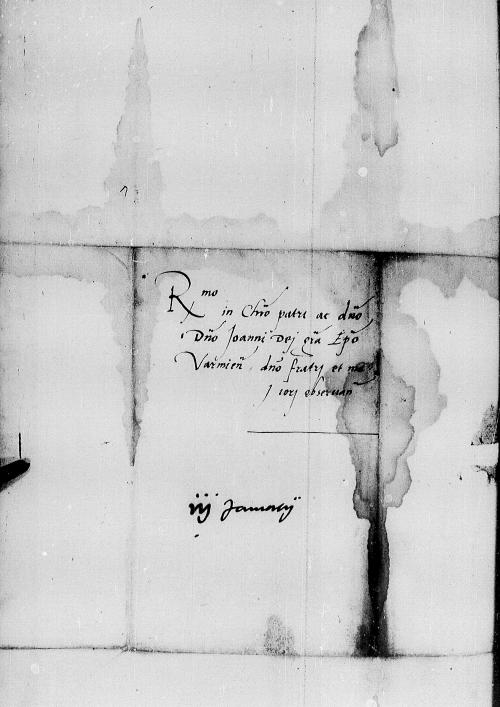 Rmo
in Chro patri ac dno
Dno Joanni Dej gra Epo
Varmien dno fratrj et ma
jorj obseruan
iij Januarij